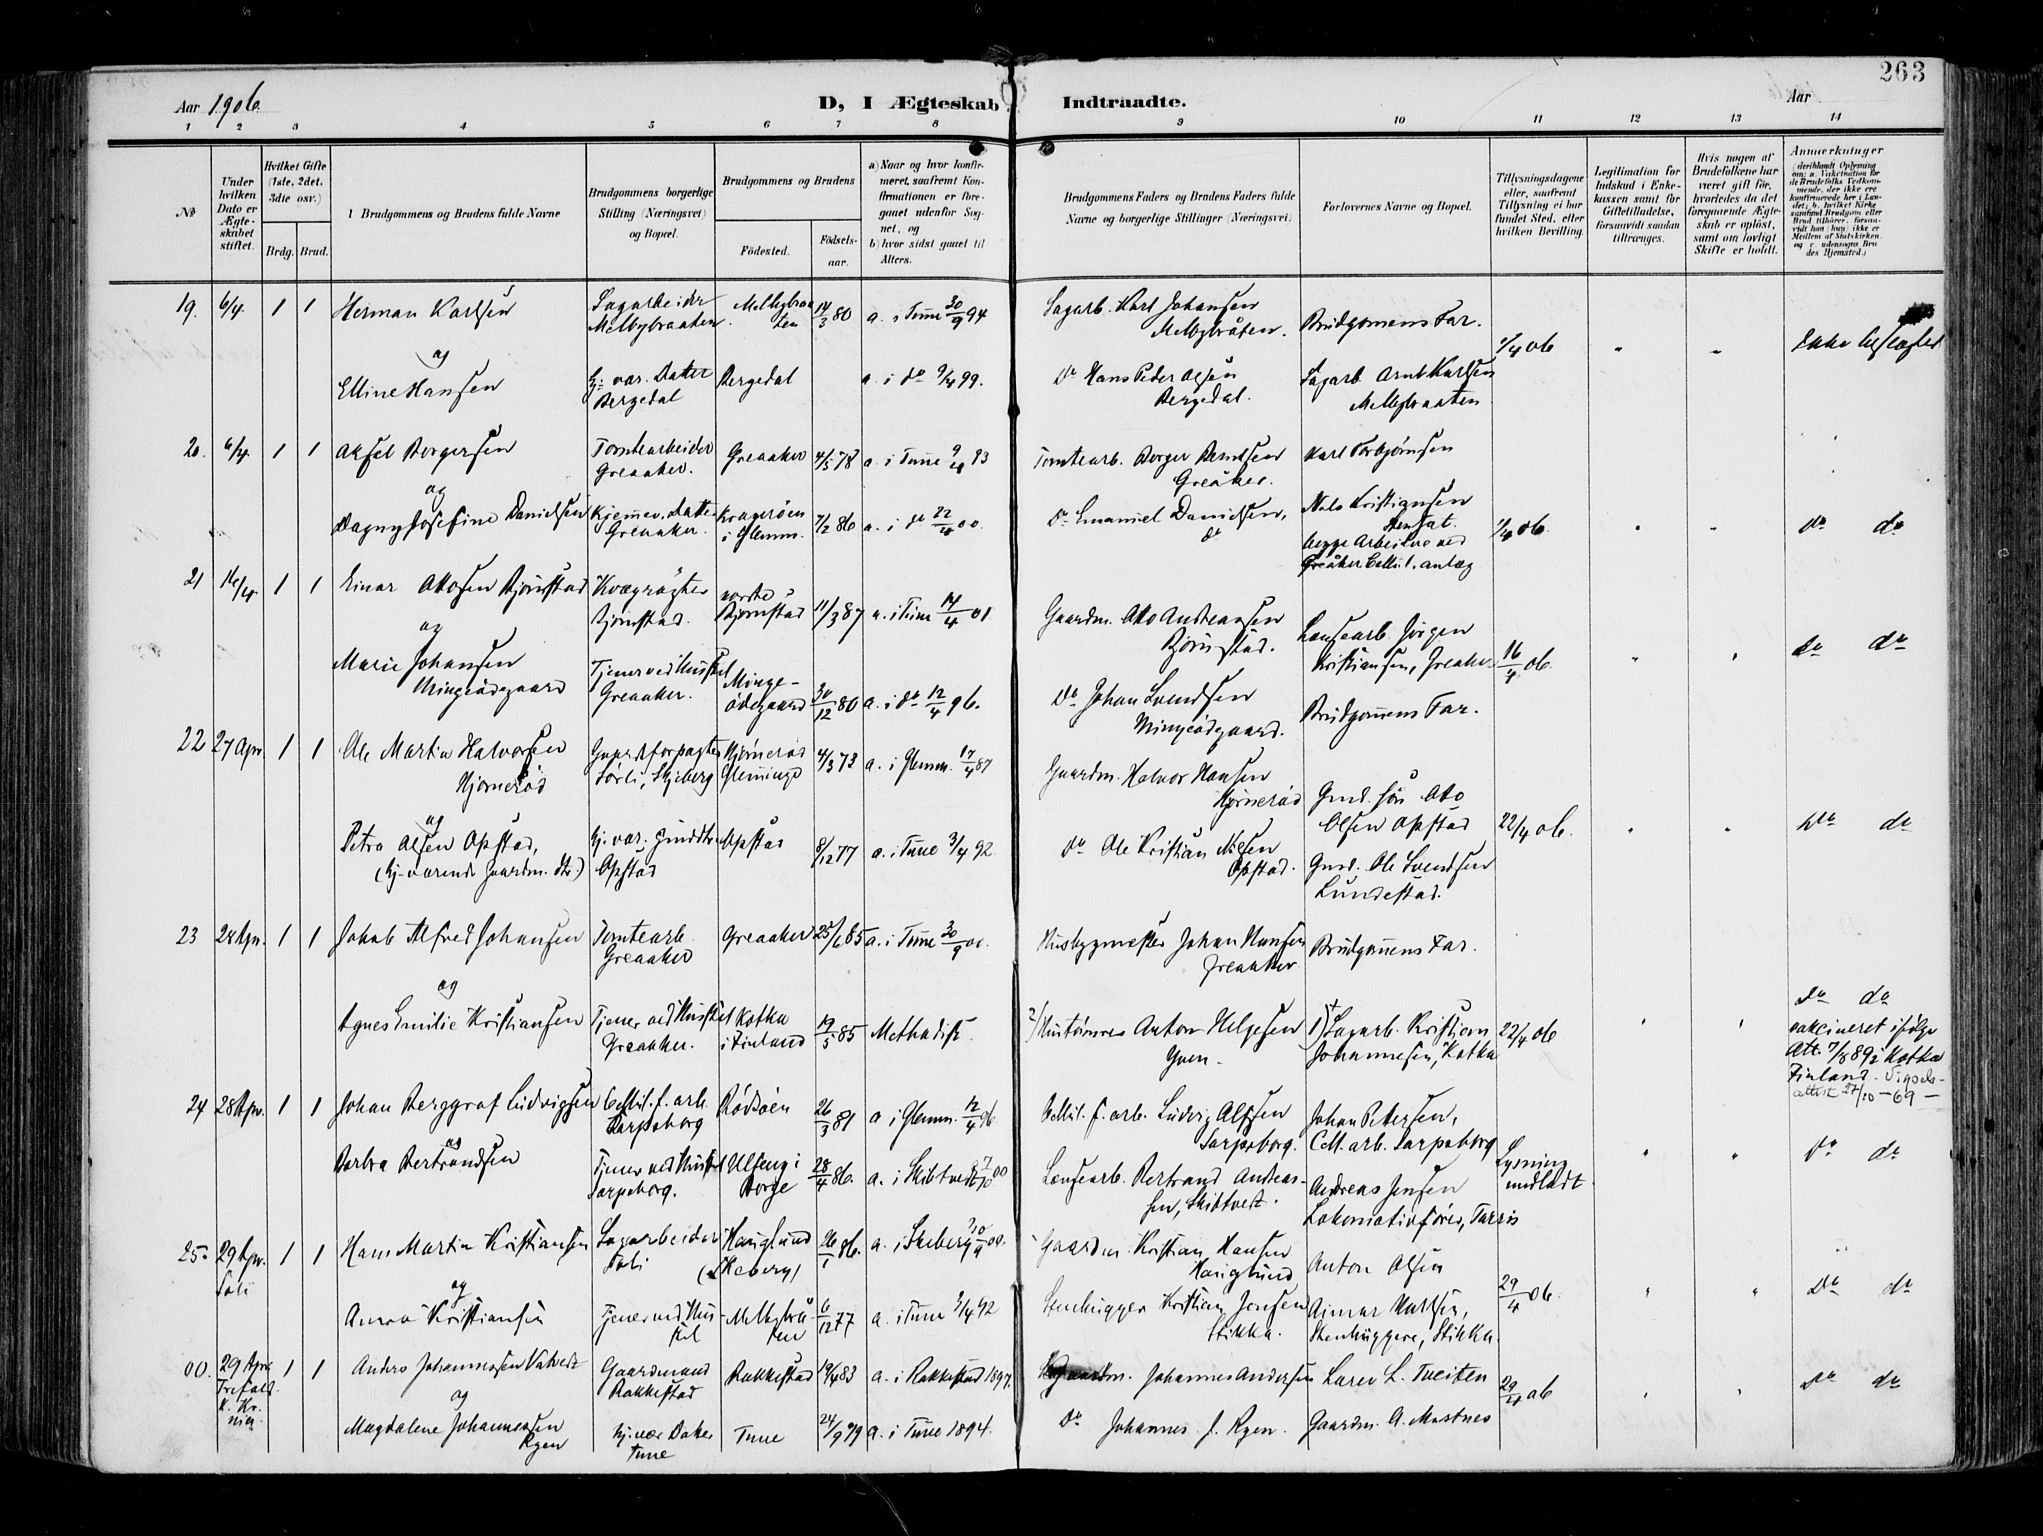 263
Aar 1906. D, I Ægteskab Indtraadte. Aar
1 2 3 4 5 6 7 8 9 10 11 12 13 14
No
Under hvilken Dato er Ægteskabet stiftet.
Hvilket Gifte (1ste, 2det, 3die osv.)
Brdg. Brud.
1 Brudgommens og Brudens fulde Navne
Brudgommens borgerlige Stilling (Næringsvei) og Bopæl.
Brudgommens og Brudens
Fødested. Fødselsaar.
a) Naar og hvor konfirmeret, saafremt Konfirmationen er foregaaet udenfor Sognet, og
b) hvor sidst gaaet til Alters.
Brudgommens Faders og Brudens Faders fulde Navne og borgerlige Stillinger (Næringsvei)
Forlovernes Navne og Bopæl.
Tillysningsdagene eller, saafremt Tillysning ei har fundet Sted, efter hvilken Bevilling.
Legitimation for Indskud i Enkekassen samt for Giftetilladelse, forsaavidt saadan tiltrænges.
Hvis nogen af Brudefolkene har været gift før, hvorledes da det foregaaende Ægteskab er opløst, samt om lovligt Skifte er holdt.
Anmærkninger
19. 6/4 1 1 Herman Karlsen Sagarbeider Melbybraaten 14/3 80 a. i Tune 30/9 94 Sagarb. Karl Johansen Brudgomens Far.
Melbybraaten Melbybråten. 1/4 06
og
Elline Hansen Hj: vær. Datter Bergedal a. i do 9/4 99. do Hans Peder Olsen Sagarb. Arnt Karlsen
Bergedal Bergedal. Melbybraaten
20. 6/4 1 1 Aksel Borgersen Tomtearbeider Greaaker 4/5 78 a. i Tune 9/4 93 Tomtearb. Borger Berntsen Karl Torbjørnsen
Greaaker. Greåker.
og
Dagny Josefine Danielsen Hjemmev. Datter Kragerøen 7/2 86 a. i do 22/4 00. do Emanuel Danielsen, Nils Kristiansen
Greaaker. i Glemm. do begge Arbeidere ved 1/4 06 do do
Greåker Cellul. anlæg
21 16/4 1 1 Einar Ottosen Bjørnstad Kvægrøgter nordre Bjørnstad 11/3 87 a. i Tune 14/4 01 Gaardm. Otto Andreassen Lænsearb. Jørgen
Bjørnstad. Bjørnstad. Kristiansen, Greaaker 16/4 06 do do
og
Marie Johansen Tjener ved Husstel Minge- 30/12 80 a. i do 12/4 96. do Johan Svendsen Brudgomens Far.
Mingeødegaard Greaaker. ødegaard Mingeødegaard.
22 27 Apr. 1 1 Ole Martin Halvorsen Gaardforpagter Hjørnerød 4/3 73 a. i Glemm. 17/4 87 Gaardm. Halvor Hansen Gmd. søn Otto
Hjørnerød Sørli, Skjeberg Glemminge Hjørnerød Olsen Opstad
og
Petra Olsen Opstad, Hj. vær. Opstad 8/12 77 a. i Tune 3/4 92 do Ole Kristian Opstad. Gmd. Ole Svendsen 22/4 06. Do do
(hj. værende gaardm. dtr.) Opstad Lundestad.
23 28 Apr. 1 1 Jakob Alfred Johansen Tomtearb. Greaaker 25/6 85 a. i Tune 30/9 00. Husbygmester Johan Hansen Brudgomens Far.
Greaaker Greaaker
og
Agnes Emilie Kristiansen Tjener ved Husstel Kotka 19/5 85 Methodist. Anton Helgesen Sagarb. Kristian 22/4 06 do do
Greaaker. i Finland Johannesen, Kotka vakcineret ifølge
Att. 7/8 89 i Kotka
Finland. Vigsels-
attest 27/10 - 69 -
24 28 Apr. 1 1 Johan Berggraf Ludvigsen Cellul. f. arb. Rødsøen 26/3 81 a i Glemm. 12/4 96 Cellul. f. arb. Ludvig Johan Petersen,
Sarpsborg Sarpsborg. Cell. arb. Sarpsborg
og
Barbra Bertrandsen Tjener ved Husstel Ulfeng i 28/4 86. a. i Skibtvedt 7/10 00 Lænsearb. Bertrand Andreas- Andreas Jensen Lysning undladt Do do
Sarpsborg. Borge sen, Skibtvedt. Lokomotivfører,
25. 29 Apr. 1 1 Hans Martin Kristiansen Sagarbeider Hauglund 26/1 86. a. i Skeberg 30/9 00. Gaardm. Kristian Hansen Anton Olsen
Soli Soli (Skeberg) Hauglund
og
Anna Kristiansen Tjener ved Hus- Melbybrå- 6/12 77 a. i Tune 3/4 92 Stenhugger Kristian Jensen Karlsen, 29/4 06. Do do
stel ten Stikka. Stenhuggere, Stikka.
00. 29 Apr. 1 1 Anders Johannessen Gaardmand Rakkestad 19/4 83 a. i Rakkestad 1897. Gaardm. Johannes Andersen Lars L. Tveiten
Trefold. Rakkestad 29/4 06 Do do
og
Magdalene Johannessen hj. vær Datter Tune 24/9 79 a. i Tune 1894. Do Johannes J. Ryen. Gaardm. A. Mustnes
Ryen Tune